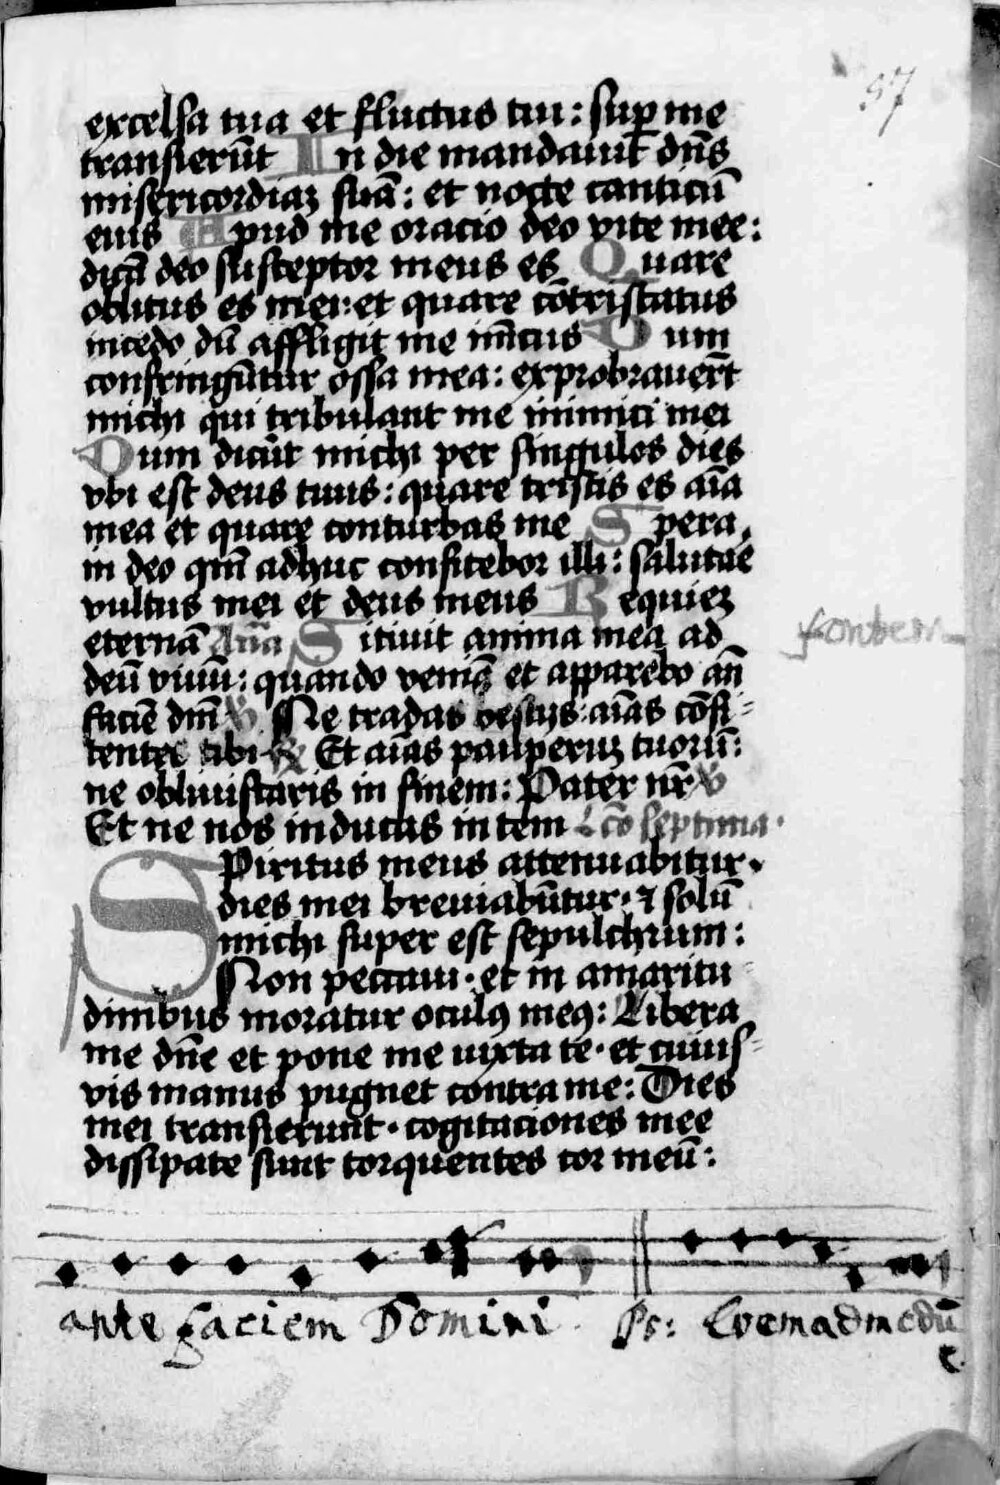 57
excelsa tua et fluctus tui: sup̄ me
transierūt In die mandauit dn̄s
misericordiaz suā: et nocte canticū
eius Apud me oracio deo vite mee:
dicā deo susceptor meus es Quare
oblitus es mei: et quare cōtristatus
incedo dū affligit me inīcus Dum
confringūtur ossa mea: exprobrauer̄t
michi qui tribulant me inimici mei
Dum dicūt michi per singulos dies
vbi est deus tuus: quare tristis es aīa
mea et quare conturbas me Spera
in deo qm̄ adhuc confitebor illi: salutaē
vultus mei et deus meus Requiez
eternā Añā Sitiuit anima mea ad
fontem
deū viuū: quando veniā et apparebo an̄
faciē dn̄i ℣ Ne tradas bestijs aīas cōfi=
tentes tibi ℟ Et aīas pauperuz tuorū:
ne obliuiscaris in finem: Pater nr̄ ℣
Et ne nos inducas in tem Lc̄o septima.
SPiritus meus attenuabitur.
dies mei breuiabūtur. ⁊ solū
michi super est sepulchrum:
Non peccaui. et in amaritu
dinibus moratur oculꝯ meꝯ: Libera
me dn̄e et pone me iuxta te. et cuius=
vis manus pugnet contra me: Dies
mei transierunt. cogitaciones mee
dissipate sunt torquentes cor meū:
ante faciem Domini Ps: Quemadmodū